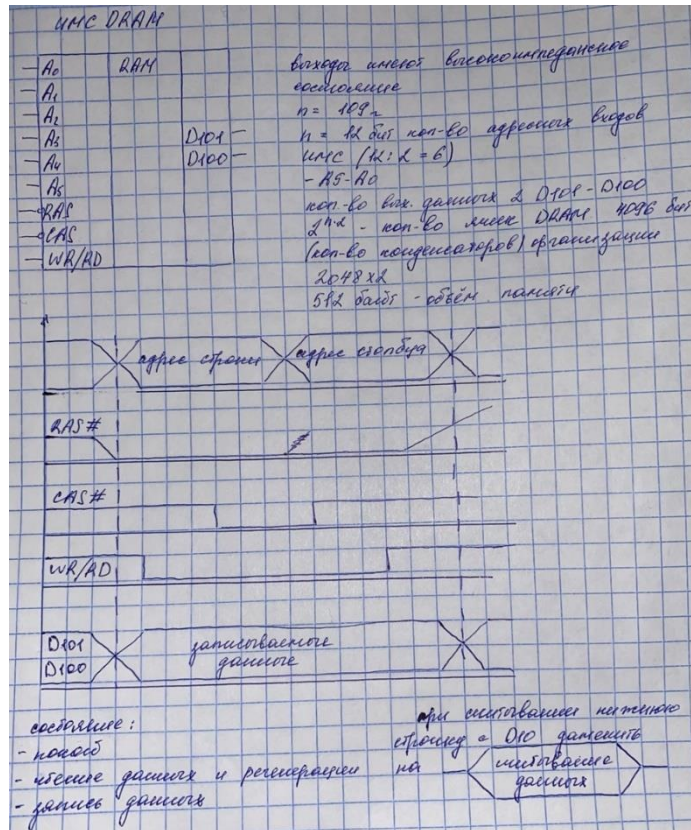 ИМС DRAM
A0 RAM
A1
A2
A3 D101
A4 D100
A5
RAS
CAS
WR/RD
выходы имеют высокоимпедансное
состояние
n = 12 бит кол-во адресных входов
ИМС (12:2=6)
- A5-A0
кол-во вых. данных 2 D101-D100
- кол-во ячеек DRAM 4096 бит
(кол-во конденсаторов) организации
2048x2
512 байт - объём памяти
адрес строки адрес столбца
RAS#
CAS#
WR/RD
D101
D100
записываемые
данные
состояние:
- покой
- чтение данных и регенерации
- запись данных
при считывании нижнюю
строчку с D10
на считывание
данных